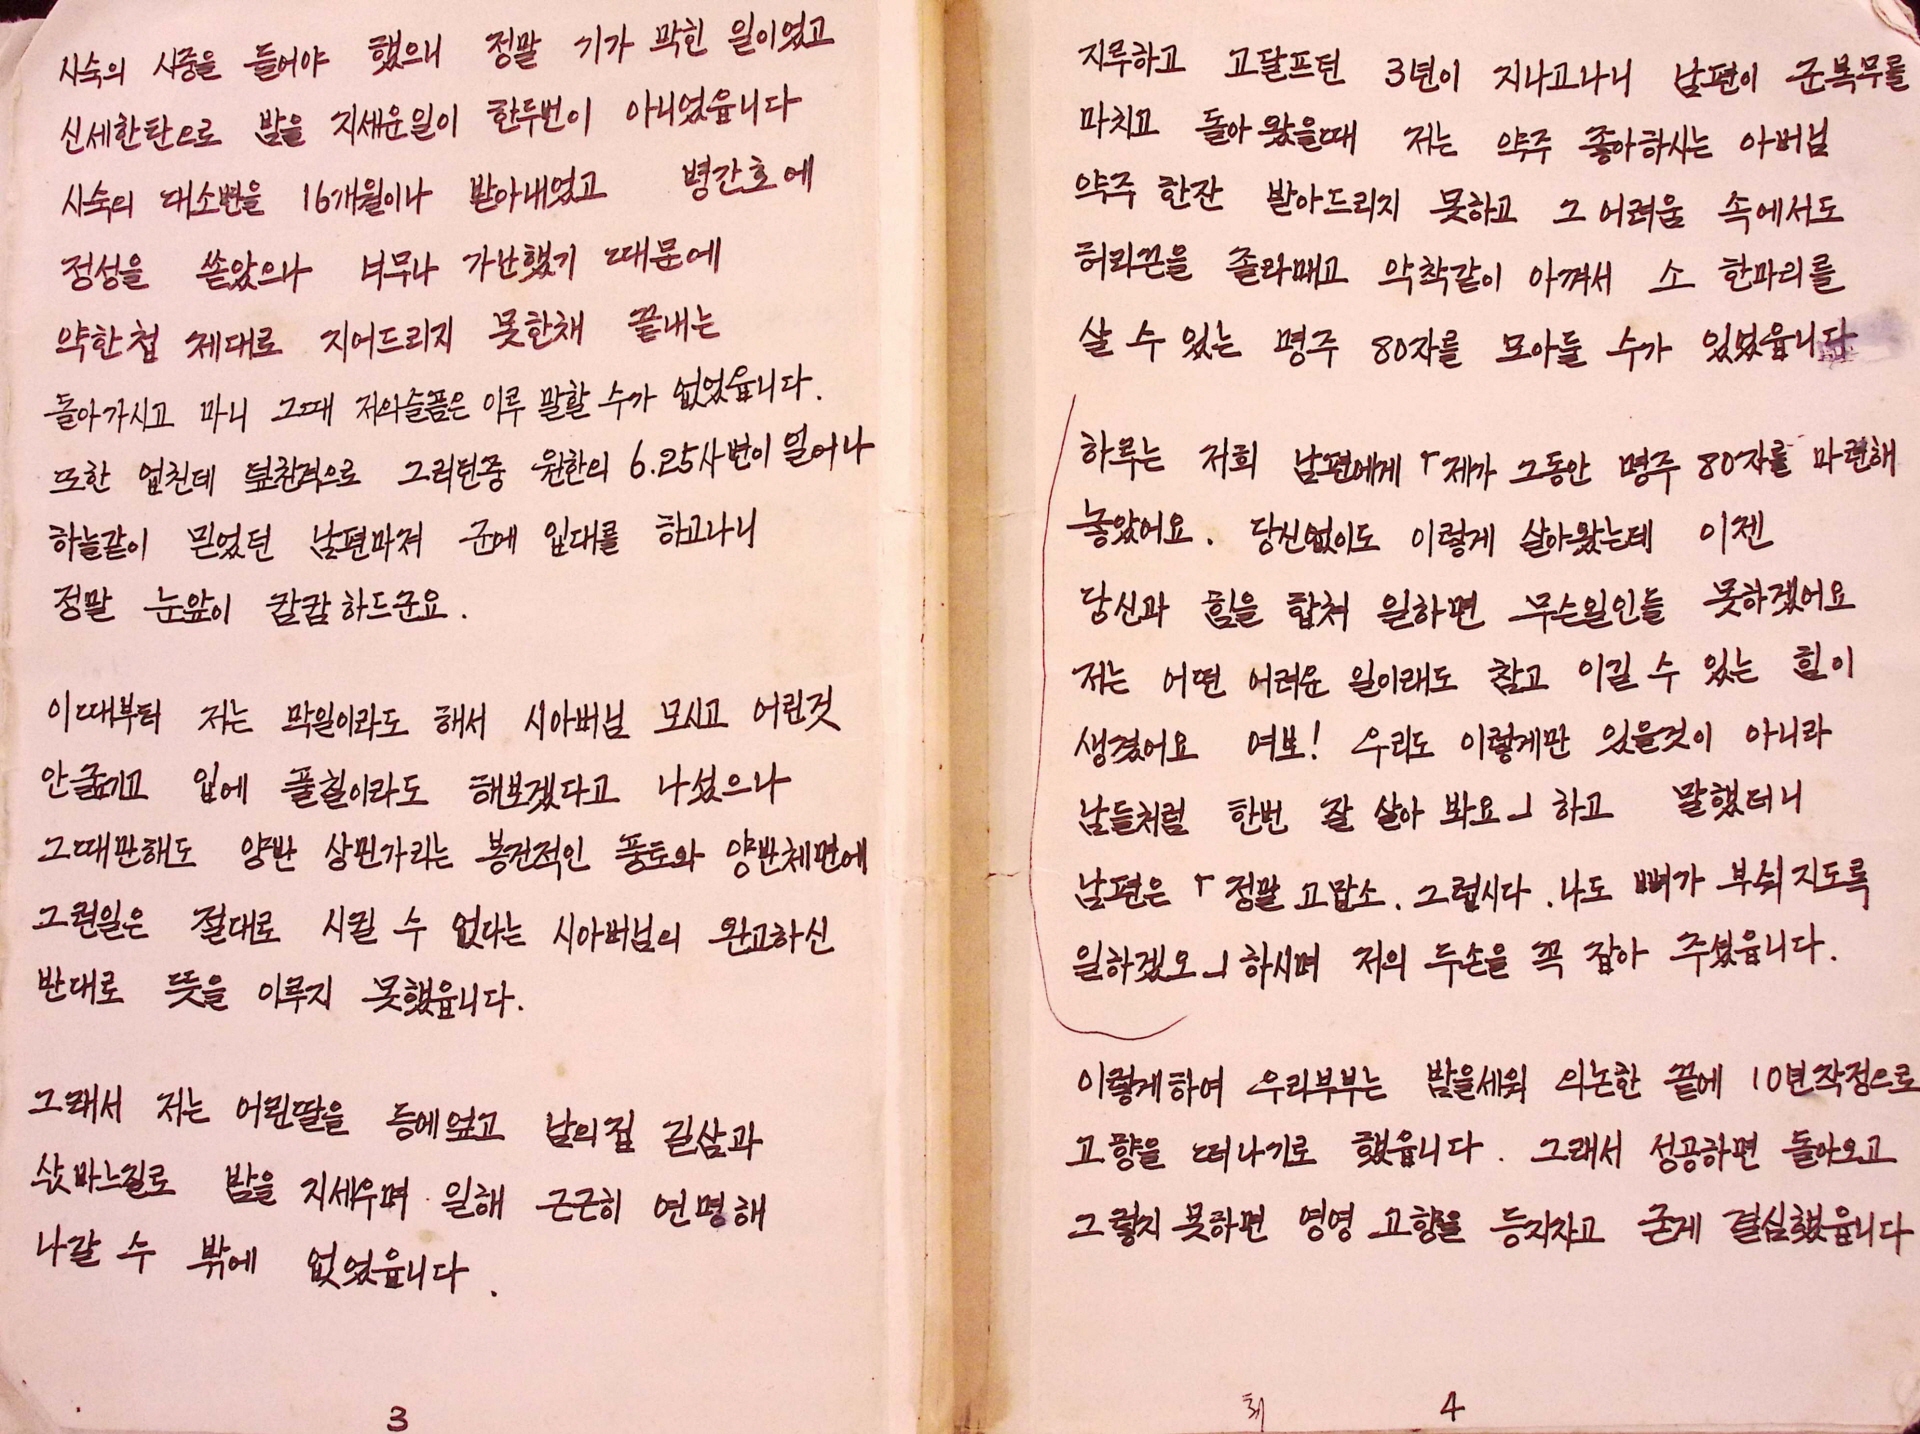 시숙의 시중을 들어야 했으니 정말 기가 막힌 일이었고
신세한탄으로 밤을 지세운일이 한두번이 아니었읍니다
시숙의 대소변을 16개월이나 받아내었고 병간호에
정성을 쏟았으나 너무나 가난했기 때문에
약한첩 제대로 지어드리지 못한채 끝내는
돌아가시고 마니 그때 저의슬픔은 이루 말할 수가 없었읍니다.
또한 엎친데 덮친격으로 그러던중 원한의 6.25사변이 일어나
하늘같이 믿었던 남편마져 군에 입대를 하고나니
정말 눈앞이 캄캄하드군요.
이때부터 저는 막일이라도 해서 시아버님 모시고 어린것
안굶기고 입에 풀칠이라도 해보겠다고 나섰으나
그때만해도 양반 상민가리는 봉건적인 풍토와 양반체면에
그런일은 절대로 시킬 수 없다는 시아버님의 완고하신
반대로 뜻을 이루지 못했읍니다.
그래서 저는 어린딸을 등에업고 남의집 길삼과
삯바느질로 밤을 지세우며 일해 근근히 연명해
나갈 수 밖에 없었읍니다.
3
지루하고 고달프던 3년이 지나고나니 남편이 군복무를
마치고 돌아왔을때 저는 약주 좋아하시는 아버님
약주 한잔 받아드리지 못하고 그 어려움 속에서도
허리끈을 졸라매고 악착같이 아껴서 소 한마리를
살 수 있는 명주 80자를 모아둘 수가 있었읍니다
하루는 저희 남편에게 「제가 그동안 명주 80자를 마련해
놓았어요. 당신없이도 이렇게 살아왔는데 이젠
당신과 힘을 합쳐 일하면 무슨일인들 못하겠어요
저는 어떤 어려운 일이래도 참고 이길 수 있는 힘이
생겼어요 여보! 우리도 이렇게만 있을것이 아니라
남들처럼 한번 잘 살아 봐요」 하고 말했더니
남편은 「정말 고맙소. 그럽시다. 나도 뼈가 부숴지도록
일하겠오」 하시며 저의 두손을 꼭 잡아 주셨읍니다.
이렇게하여 우리부부는 밤을세워 의논한 끝에 10년작정으로
고향을 떠나기로 했읍니다. 그래서 성공하면 돌아오고
그렇지 못하면 영영 고향을 등지자고 굳게 결심했읍니다
4